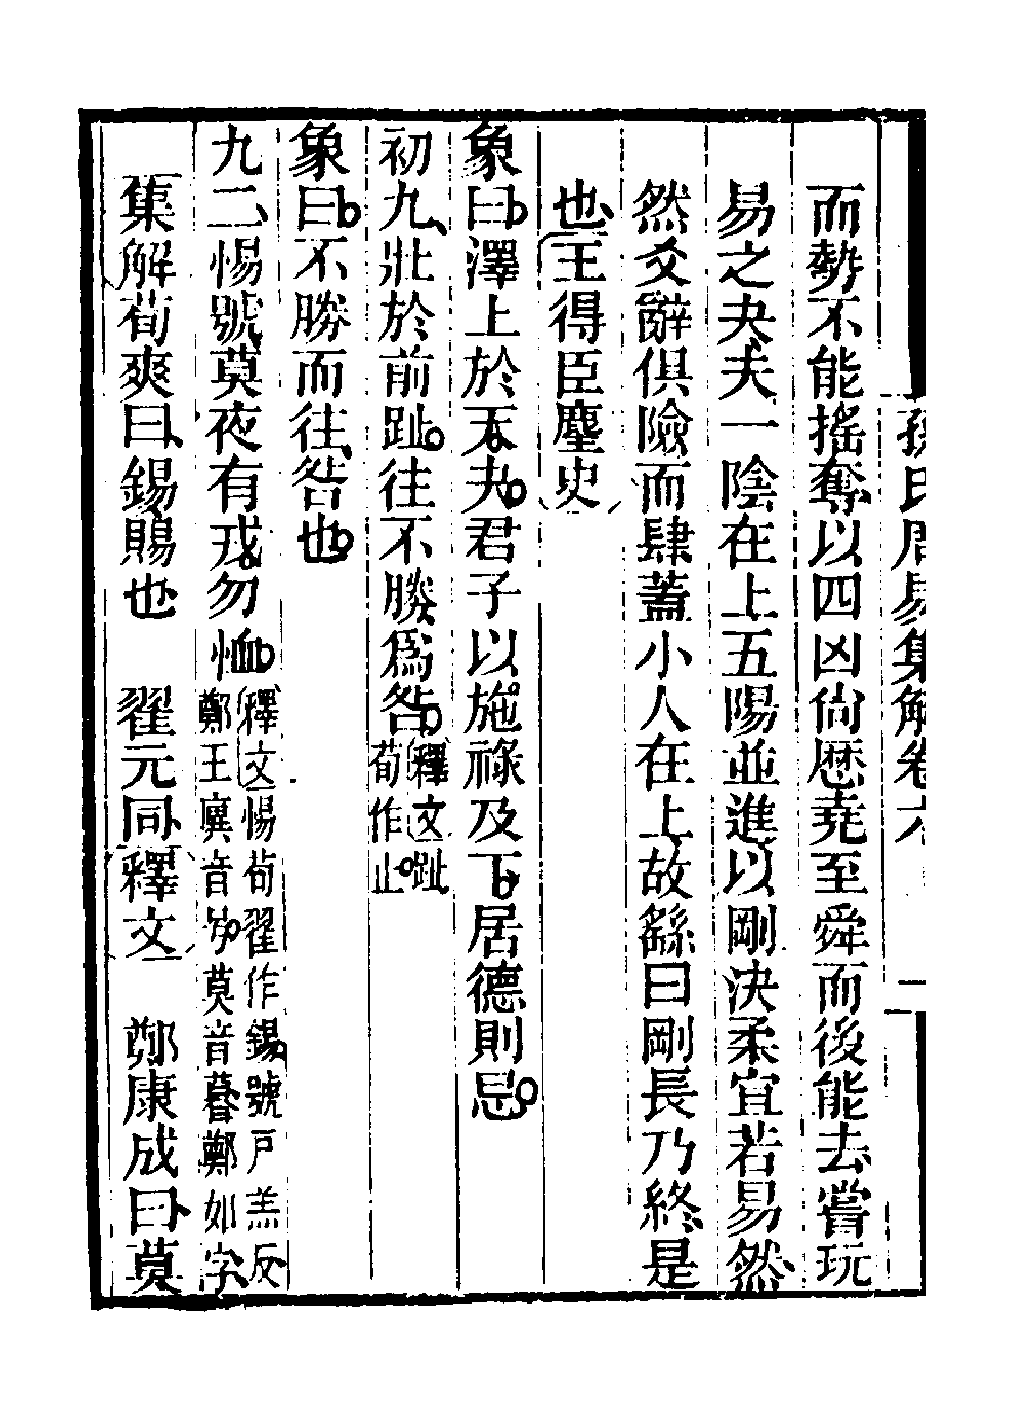 孫氏周易集解卷六
而勢不能搖奪以四凶尙歴堯至舜而後能去嘗玩
易之夬夫一陰在上五陽並進以剛決柔宜若易然
然爻辭俱險而肆蓋小人在上故繇曰剛長乃終是
也王得臣麈史
象曰澤上於天夬君子以施祿及下居德則忌
初九壯於前趾往不勝爲咎釋文趾荀作止
象曰不勝而往咎也
九二惕號莫夜有戎勿恤釋文惕荀翟作錫號戸羔反鄭王廙音号莫音暮鄭如字
集解荀爽曰錫賜也 翟元同釋文 鄭康成曰莫